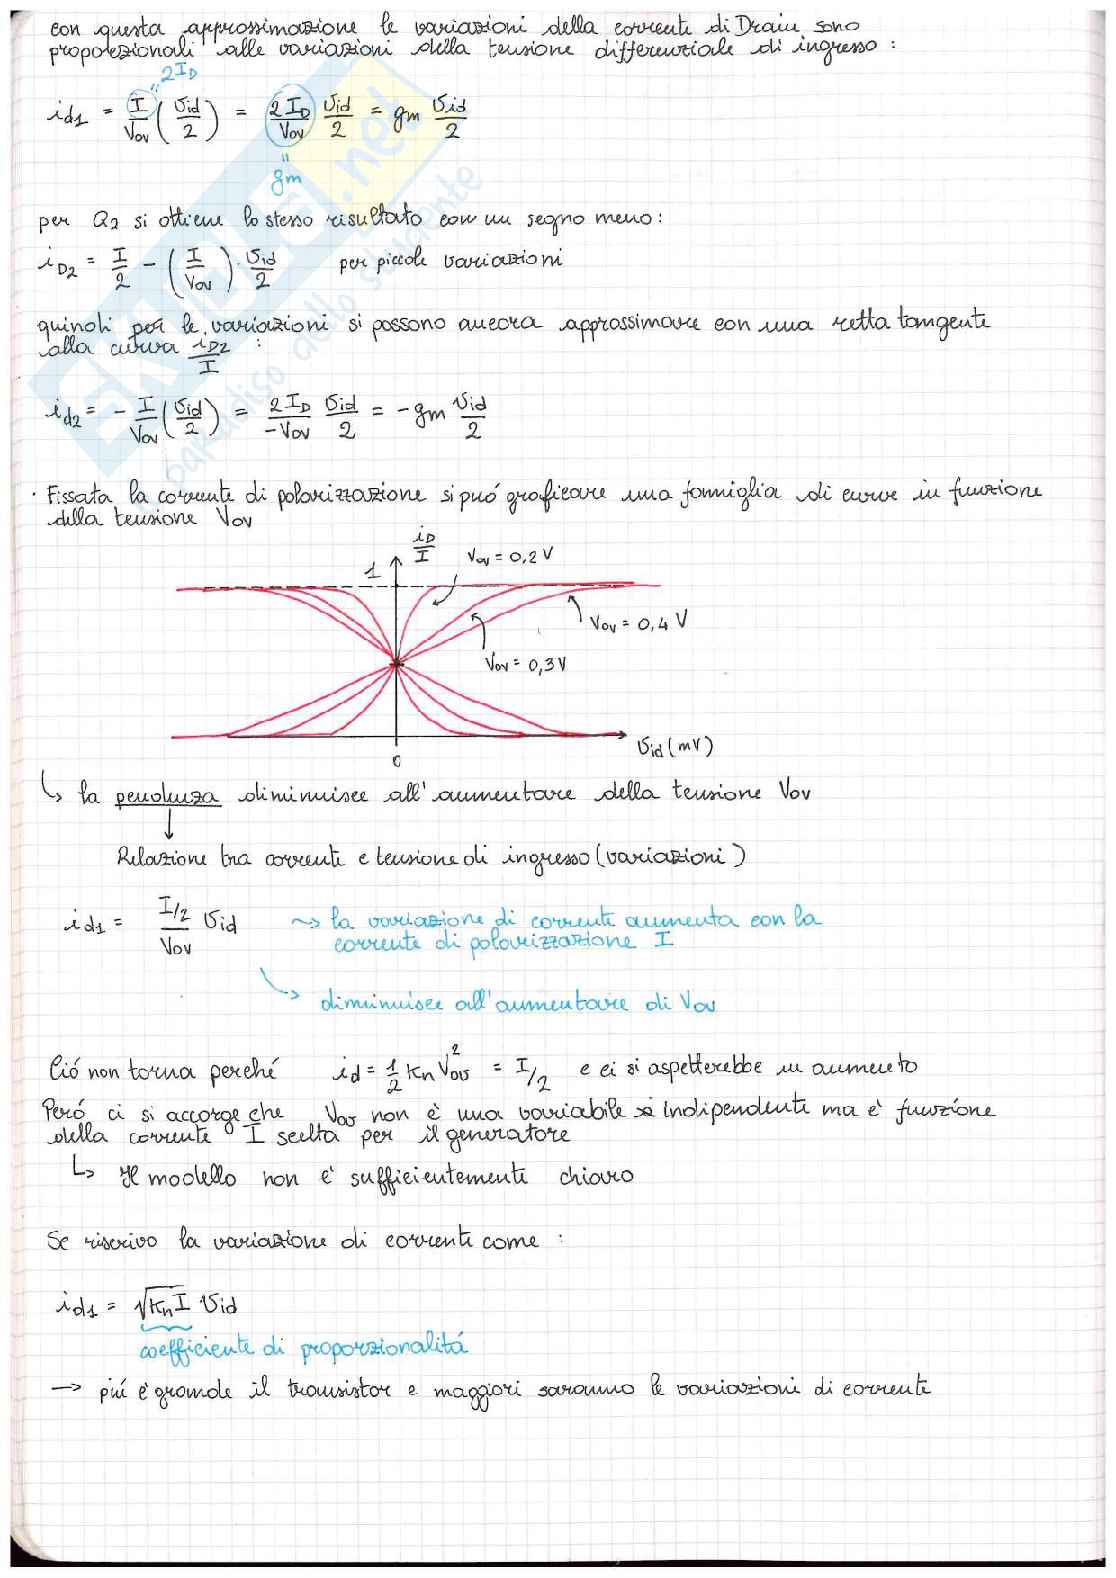 con questa approssimazione le variazioni della corrente di Drain sono
proporzionali alle variazioni della tensione differenziale di ingresso :
2ID
id1 = I/Vov (vid/2) = 2ID/Vov vid/2 = gm vid/2
gm
per Q2 si ottiene lo stesso risultato con un segno meno:
iD2 = I/2 - (I/Vov) · vid/2 per piccole variazioni
quindi per le variazioni si possono ancora approssimare con una retta tangente
alla curva iD2/I :
id2 = - I/Vov (vid/2) = 2ID/-Vov vid/2 = -gm vid/2
· Fissata la corrente di polarizzazione si può graficare una famiglia di curve in funzione
della tensione Vov
iD/I
1
Vov = 0,2 V
Vov = 0,4 V
Vov = 0,3 V
vid (mV)
0
↳ la pendenza diminuisce all'aumentare della tensione Vov
↓
Relazione tra corrente e tensione di ingresso (variazioni)
id1 = I/2/Vov vid ~> la variazione di corrente aumenta con la
corrente di polarizzazione I
↳ diminuisce all'aumentare di Vov
Ció non torna perché id = 1/2 kn Vov² = I/2 e ci si aspetterebbe un aumento
Peró ci si accorge che Vov non è una variabile indipendente ma é funzione
della corrente I scelta per il generatore
↳ Il modello non é sufficientemente chiaro
Se riscrivo la variazione di corrente come :
id1 = √KnI vid
coefficiente di proporzionalitá
→ piú é grande il transistor e maggiori saranno le variazioni di corrente
SKUOLA.net
paradiso dello studente